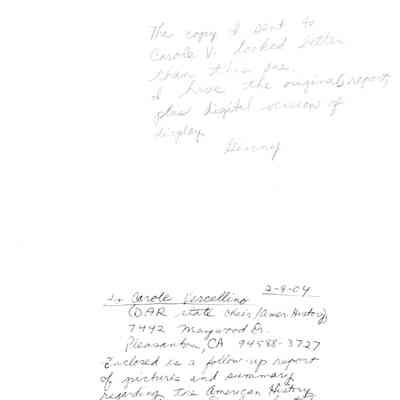 The copy I sent to
Carole V. looked better
than this one.
I have the original report,
plus digital version of
display.
2-9-04
To Carole Vercellino
(DAR state chair/Amer. History)
7442 Maywood Dr.
Pleasanton, CA 94588-3727
Enclosed is a follow-up report
of pictures and summary
regarding the American History